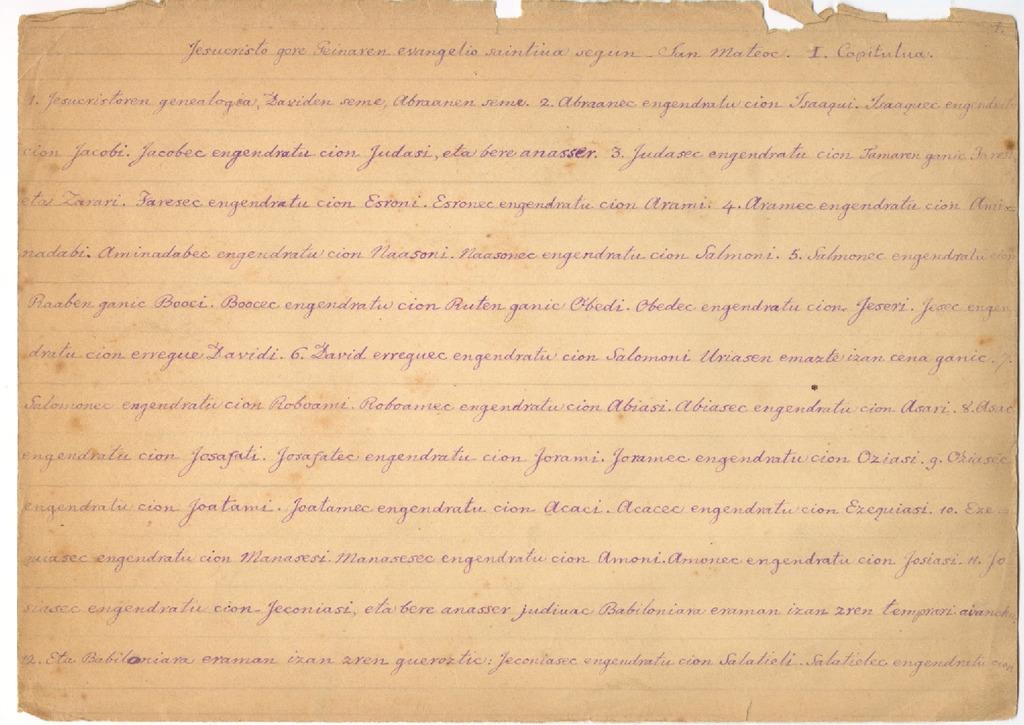 1.
Jesucristo gore Geinaren evangelio saintiua segun San Mateoc. I. Capitulua.
1. Jesucristoren genealogia, Daviden seme, Abraanen seme. 2. Abraanec engendratu cion Isaaqui. Isaaquec engendratu
cion Jacobi. Jacobec engendratu cion Judasi, eta bere anasser. 3. Judasec engendratu cion Tamaren ganic Faresi
eta Zarari. Faresec engendratu cion Esroni. Esronec engendratu cion Arami. 4. Aramec engendratu cion Ami-
nadabi. Aminadabec engendratu cion Naasoni. Naasonec engendratu cion Salmoni. 5. Salmonec engendratu cion
Raaben ganic Booci. Boocec engendratu cion Ruten ganic Obedi. Obedec engendratu cion Jeseri. Jesec engen-
dratu cion erregue Davidi. 6. David erreguec engendratu cion Salomoni Uriasen emazte izan cena ganic. 7.
Salomonec engendratu cion Roboami. Roboamec engendratu cion Abiasi. Abiasec engendratu cion Asari. 8. Asac
engendratu cion Josafati. Josafatec engendratu cion Jorami. Joramec engendratu cion Oziasi. 9. Oziasec
engendratu cion Joatami. Joatamec engendratu cion Acaci. Acacec engendratu cion Ezequiasi. 10. Eze-
quiasec engendratu cion Manasesi. Manasesec engendratu cion Amoni. Amonec engendratu cion Josiasi. 11. Jo
siasec engendratu cion Jeconiasi, eta bere anasser judiuac Babiloniara eraman izan zren temprari
12. Eta Babiloniara eraman izan zren gueroztic: Jeconiasec engendratu cion Salatieli. Salatielec engendratu cion